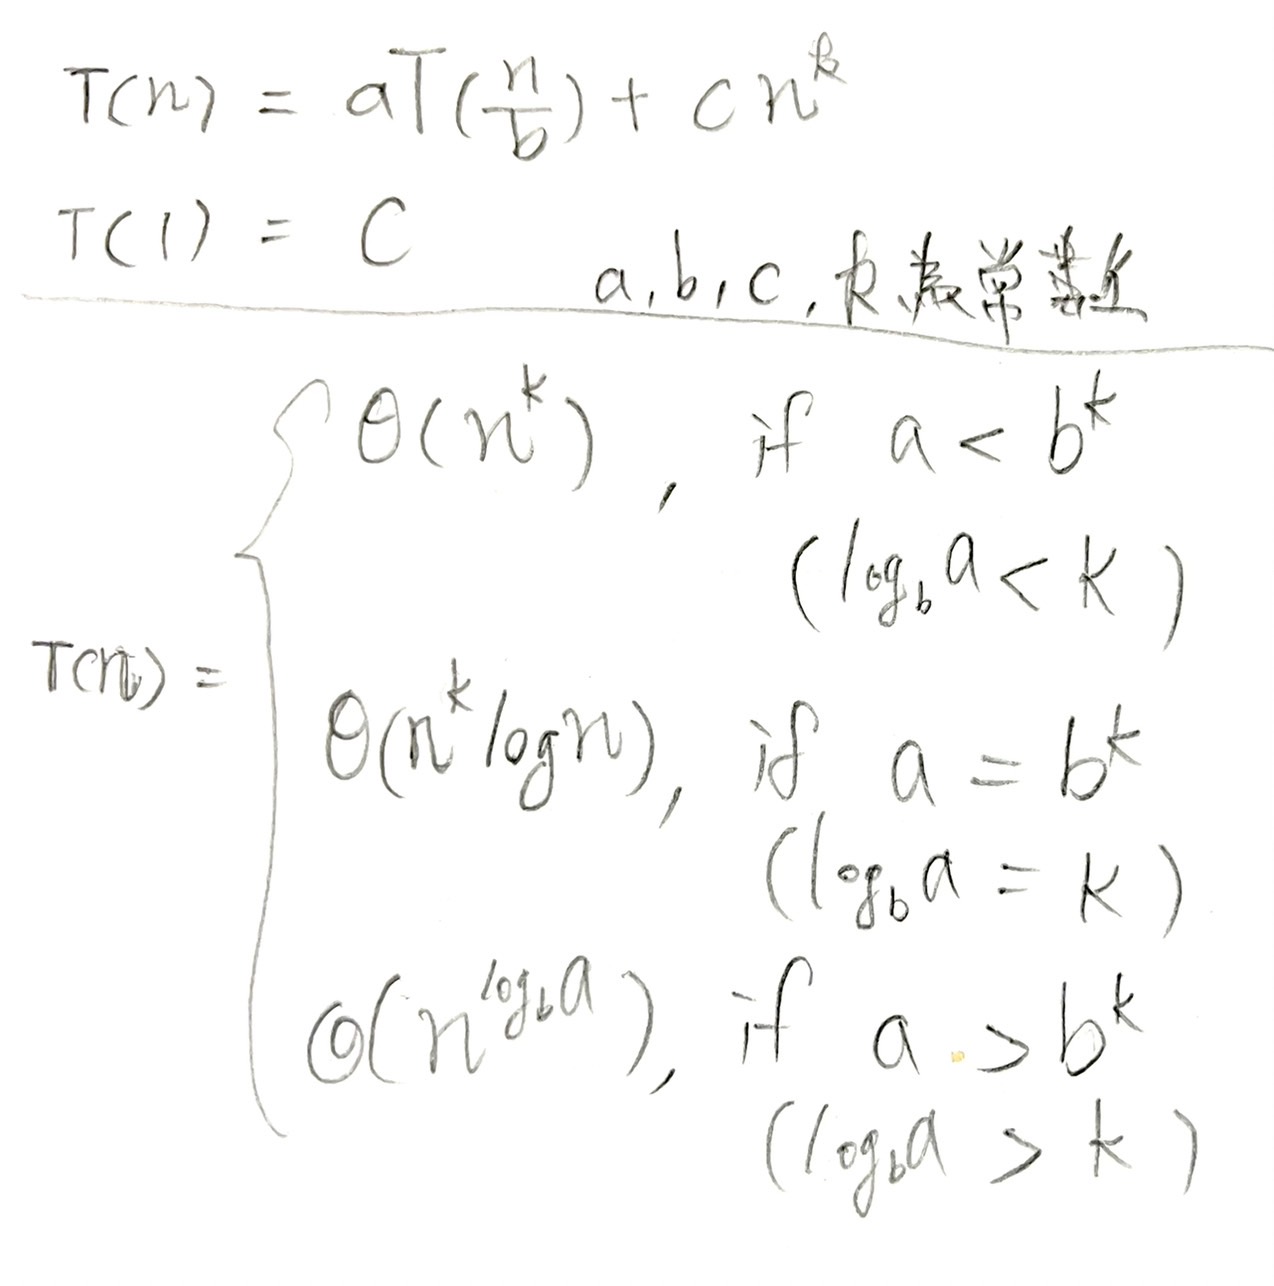 T(n) = aT(n/b) + cn^k
T(1) = C
a, b, c, k 為常數
Θ(n^k), if a < b^k
(log_b a < k)
T(n) =
Θ(n^k log n), if a = b^k
(log_b a = k)
Θ(n^{log_b a}), if a > b^k
(log_b a > k)